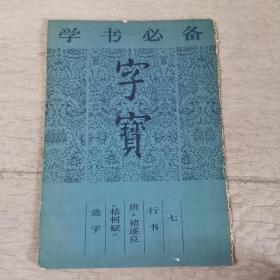 学书必备
字寳
七
行书
唐·褚遂良
“枯树赋”
选字